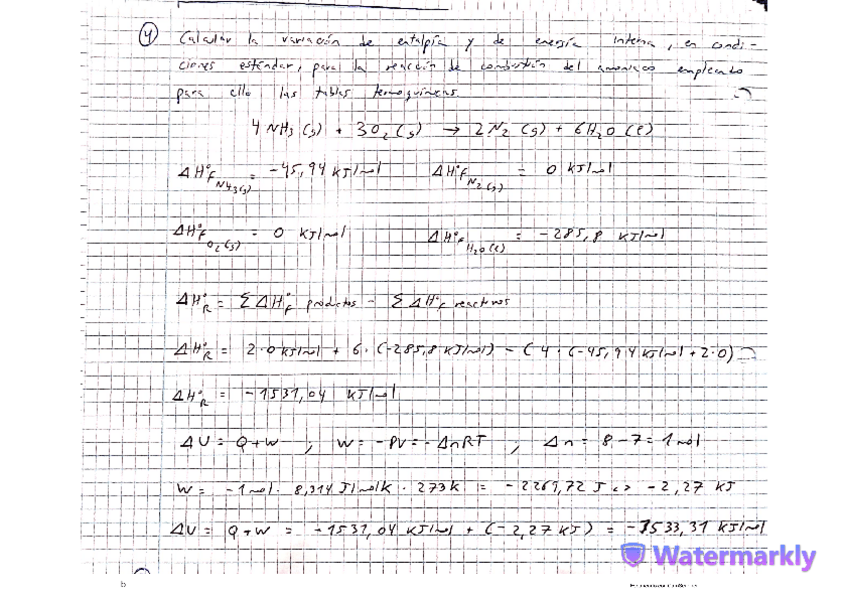 4) Calcular la variación de entalpía y de energía interna, en condi-
ciones estándar, para la reacción de combustión del amoniaco empleando
para ello las tablas termoquímicas.
4 NH3 (g) + 3O2 (g) → 2N2 (g) + 6H2O (l)
ΔH°f NH3(g) = -45,94 kJ/mol ΔH°f N2(g) = 0 kJ/mol
ΔH°f O2(g) = 0 kJ/mol ΔH°f H2O(l) = -285,8 kJ/mol
ΔH°R = Σ ΔH°f productos - Σ ΔH°f reactivos
ΔH°R = 2·0 kJ/mol + 6·(-285,8 kJ/mol) - (4·(-45,94 kJ/mol + 2·0)
ΔH°R = -1531,04 kJ/mol
ΔU = Q+W ; W = -PV = -ΔnRT ; Δn = 8-7 = 1 mol
W = -1 mol · 8,314 J/molK · 273K = -2269,72 J <> -2,27 KJ
ΔU = Q+W = -1531,04 kJ/mol + (-2,27 KJ) = -1533,31 kJ/mol
Watermarkly